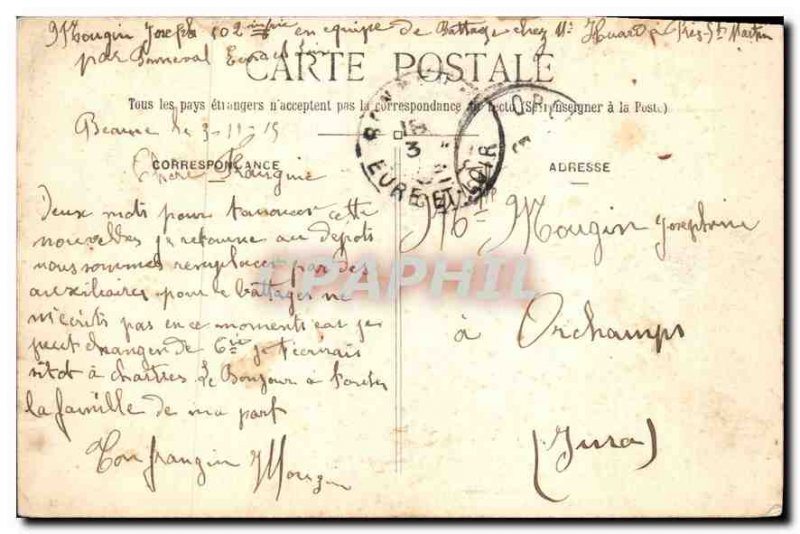 Mougin Joseph 102 infrie en equipe de Battage chez Mr Huard à Prés-St-Martin
par Bonneval Eure et Loir
CARTE POSTALE
Tous les pays étrangers n'acceptent pas la correspondance au recto (Se renseigner à la Poste)
Beaune le 3-11-15
CORRESPONDANCE
Chere Frangine
Deux mots pour t'anoncer cette
nouvelles je retourne au depots
nous sommes remplacer par des
auxiliaires pour le battages ne
m'ecrits pas en ce moments car je
peut changer de Cie je t'ecrirais
sitot à chartres Le Bonjour à toutes
la famille de ma part
Ton frangin Mougin
ADRESSE
Mlle Mougin Josephine
à Orchamps
(Jura)
BONNEVAL
3
EURE-ET-LOIR
CPAPHIL